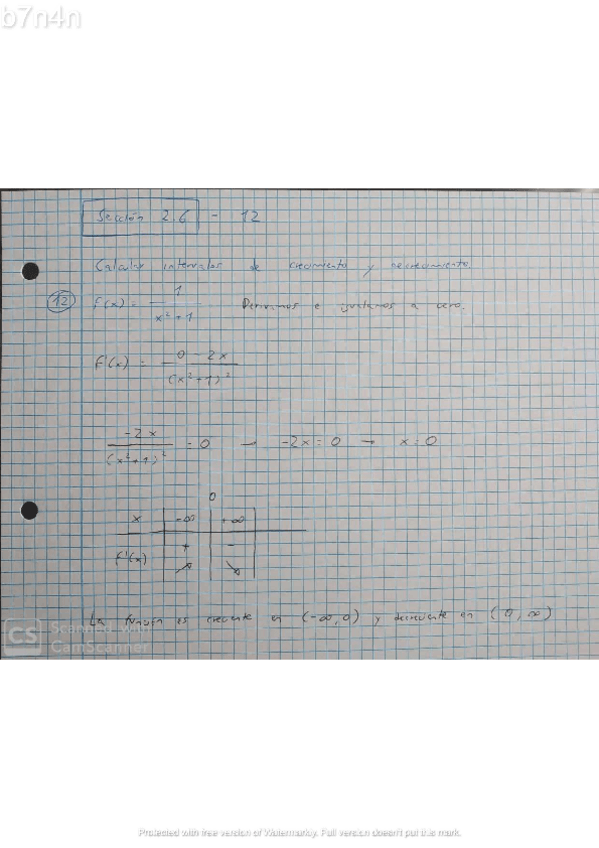 b7n4n
Sección 2.6 - 12
Calcular intervalos de crecimiento y decrecimiento
12 f(x) = 1 / x² + 1 Derivamos e igualamos a cero.
f'(x) = 0 - 2x / (x² + 1)²
-2x / (x² + 1)² = 0 → -2x = 0 → x = 0
0
x -∞ +∞
f'(x) + -
↗ ↘
La función es creciente en (-∞, 0) y decreciente en (0, ∞)
CS Scanned with
CamScanner
Protected with free version of Watermarkly. Full version doesn't put this mark.